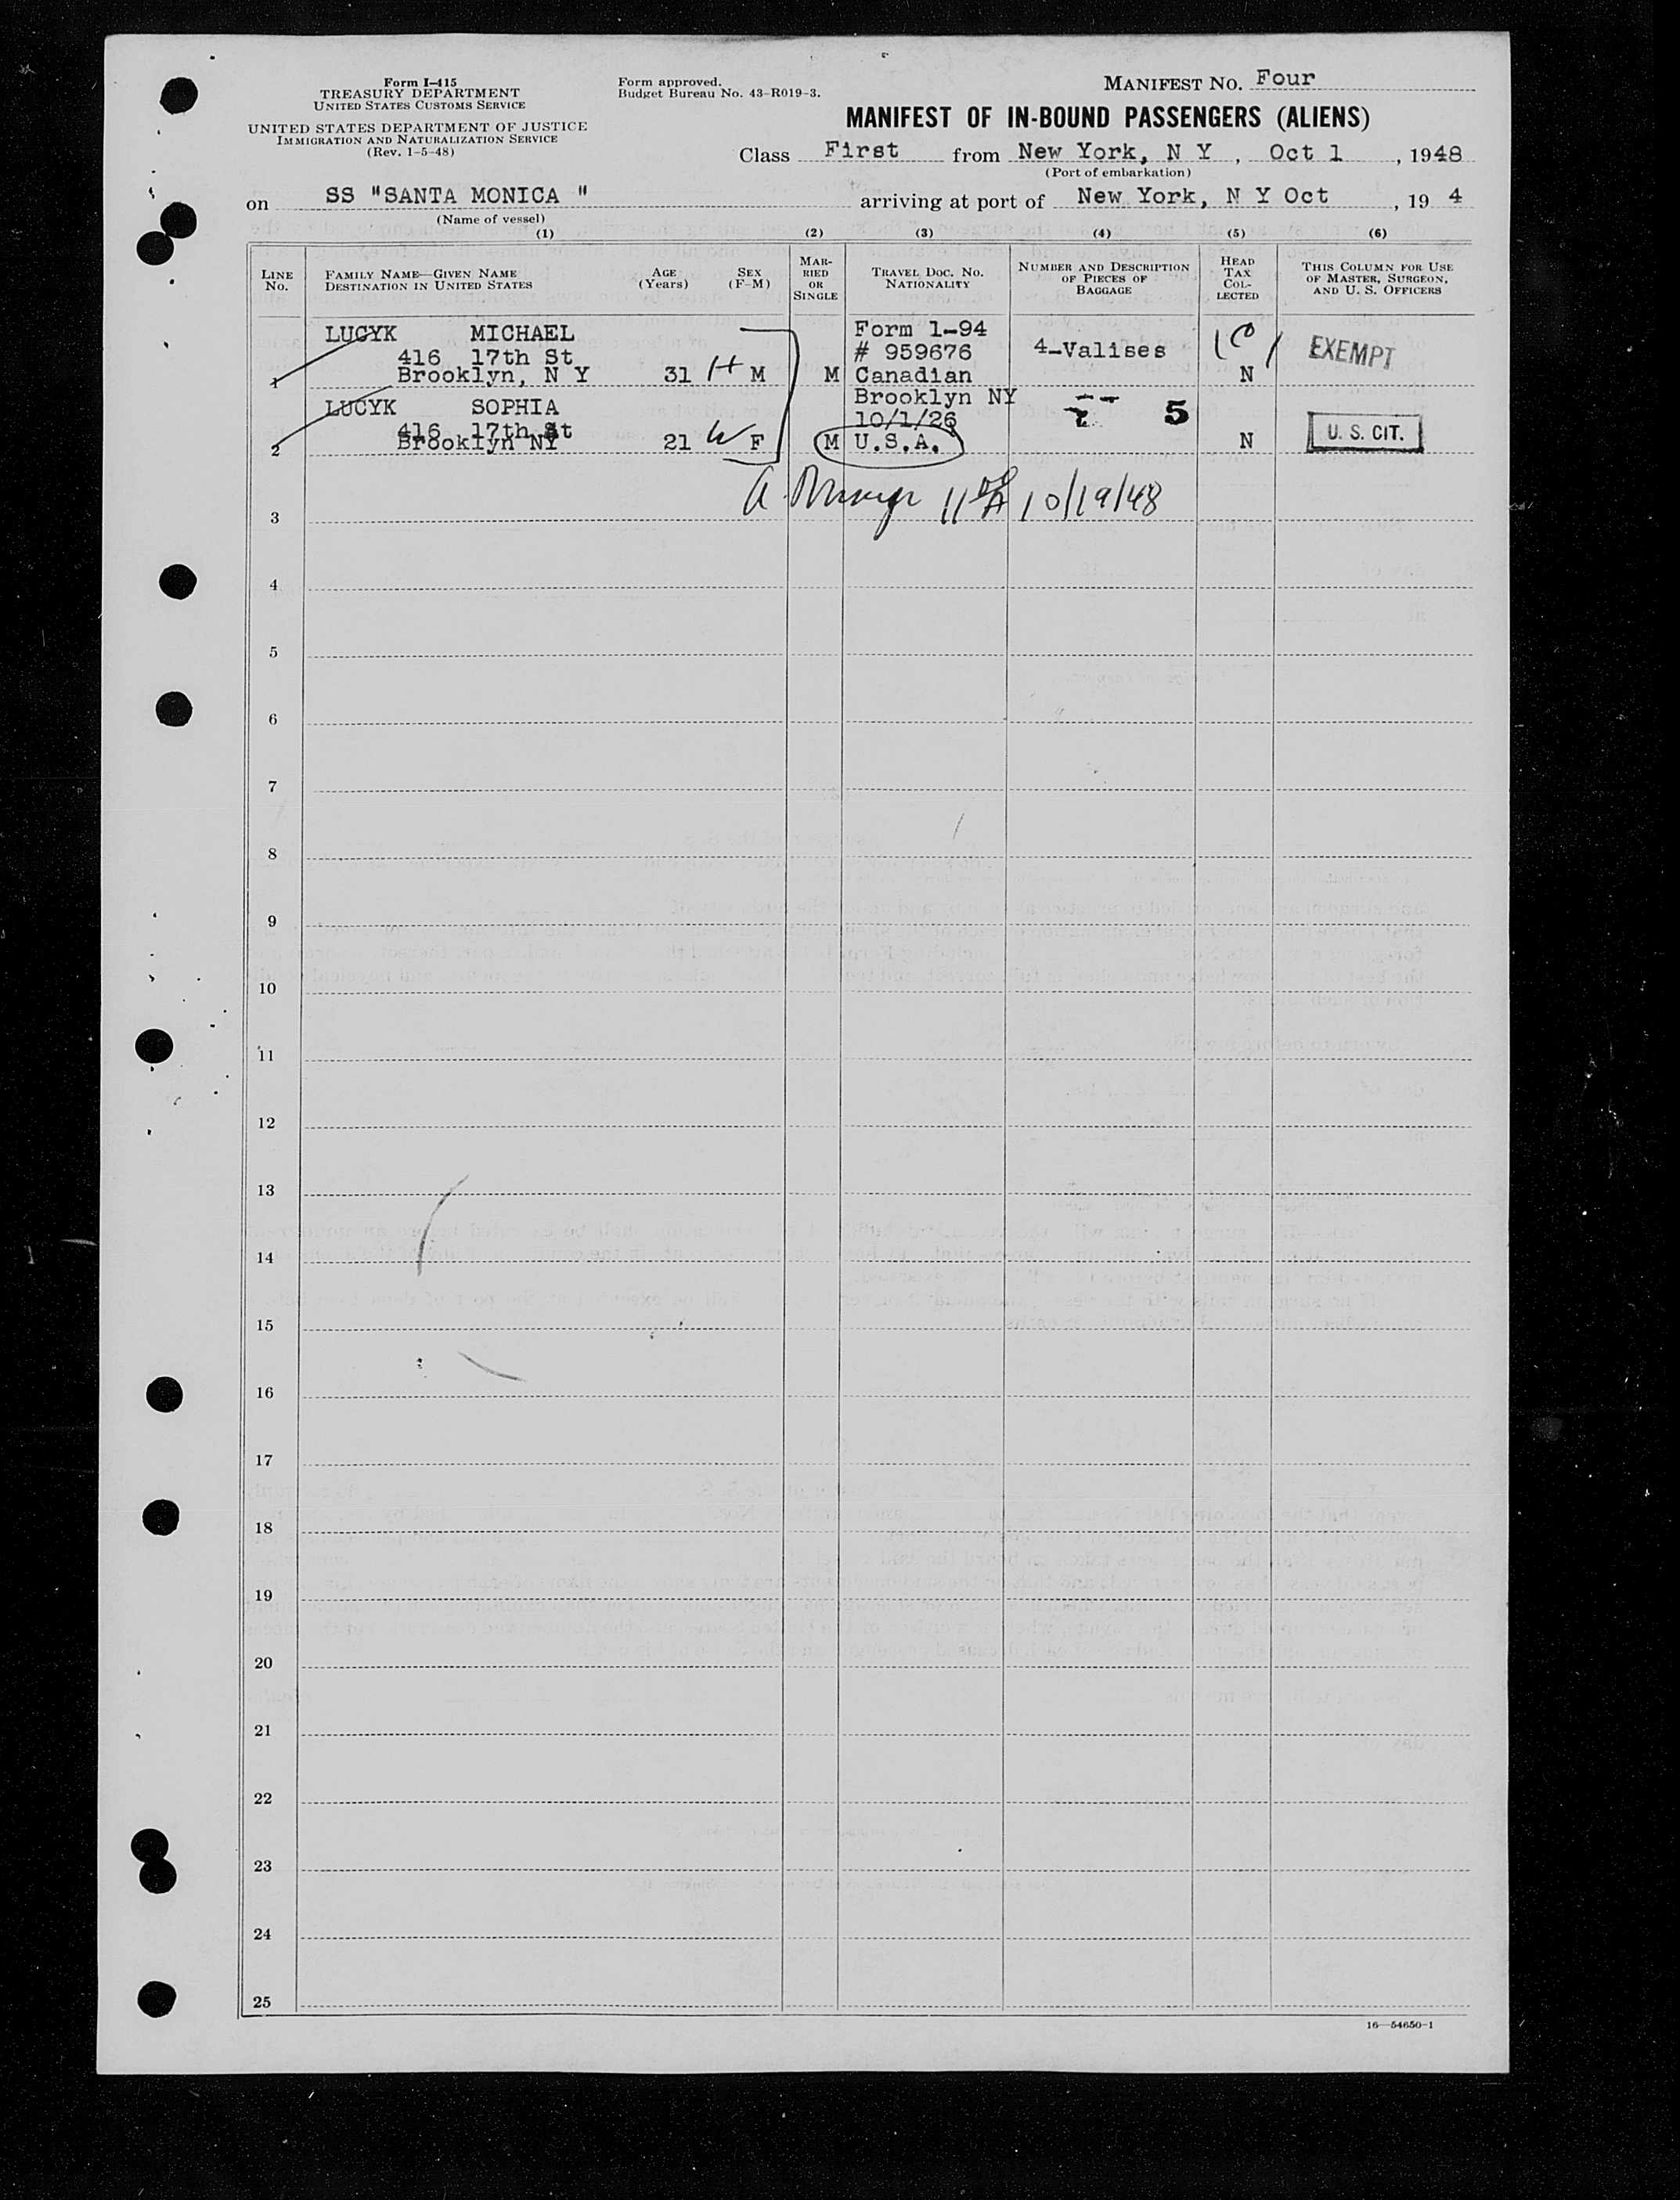 Form I-415
TREASURY DEPARTMENT
UNITED STATES CUSTOMS SERVICE
UNITED STATES DEPARTMENT OF JUSTICE
IMMIGRATION AND NATURALIZATION SERVICE
(Rev. 1-5-48)
Form approved.
Budget Bureau No. 43-R019-3.
MANIFEST NO. Four
MANIFEST OF IN-BOUND PASSENGERS (ALIENS)
Class First from New York, N Y , Oct 1 , 1948
(Port of embarkation)
on SS "SANTA MONICA " arriving at port of New York, N Y Oct , 19 4
(Name of vessel)
(1) (2) (3) (4) (5) (6)
LINE NO.
FAMILY NAME—GIVEN NAME
DESTINATION IN UNITED STATES
AGE (Years)
SEX (F-M)
MARRIED OR SINGLE
TRAVEL DOC. NO. NATIONALITY
NUMBER AND DESCRIPTION OF PIECES OF BAGGAGE
HEAD TAX COLLECTED
THIS COLUMN FOR USE OF MASTER, SURGEON, AND U. S. OFFICERS
LUCYK MICHAEL Form 1-94
416 17th St # 959676 4-Valises EXEMPT
1 Brooklyn, N Y 31 H M M Canadian N
LUCYK SOPHIA Brooklyn NY
416 17th St 10/1/26 5
2 Brooklyn NY 21 W F M U.S.A. N U. S. CIT.
10/19/48
3
4
5
6
7
8
9
10
11
12
13
14
15
16
17
18
19
20
21
22
23
24
25
16—54650-1